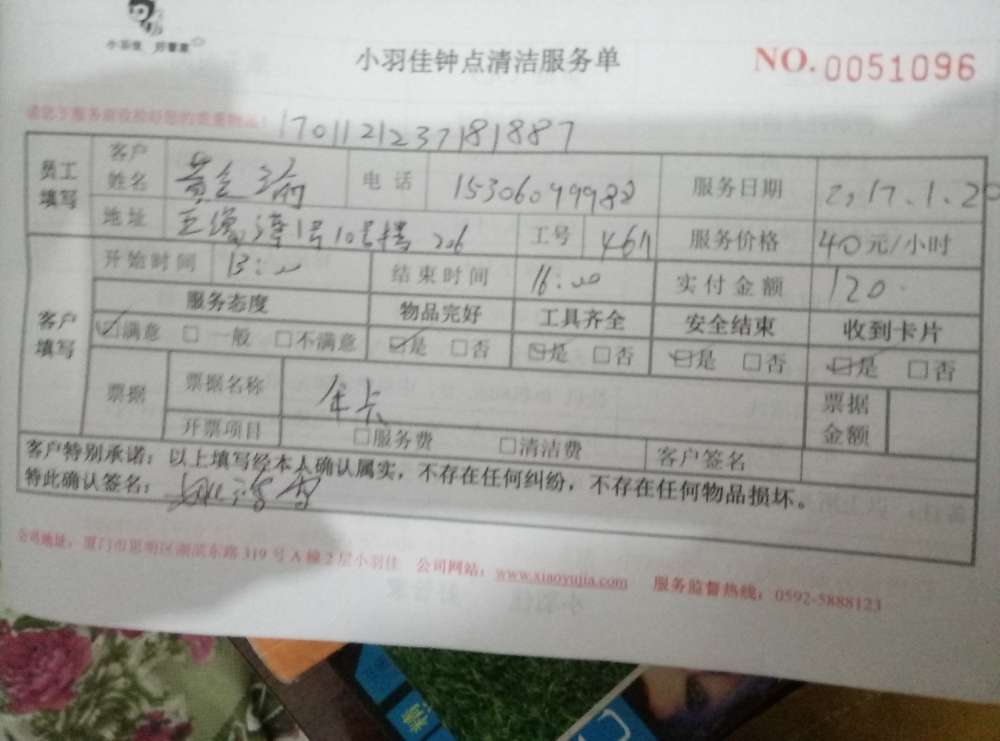 小羽佳
小羽佳钟点清洁服务单
NO. 0051096
170112123718 1887
员工填写 客户姓名 电话 15306049988 服务日期 2017.1.20
地址 1号10号楼 206 工号 服务价格 40元/小时
客户填写 开始时间 13:00 结束时间 16:00 实付金额 120
服务态度 物品完好 工具齐全 安全结束 收到卡片
☑满意 □一般 □不满意 ☑是 □否 ☑是 □否 ☑是 □否 ☑是 □否
票据 票据名称 年卡 票据金额
开票项目 □服务费 □清洁费 客户签名
客户特别承诺：以上填写经本人确认属实，不存在任何纠纷，不存在任何物品损坏。
特此确认签名：
公司地址：厦门市思明区湖滨东路 319 号 A 幢 2 层小羽佳 公司网站：www.xiaoyujia.com 服务监督热线：0592-5888123